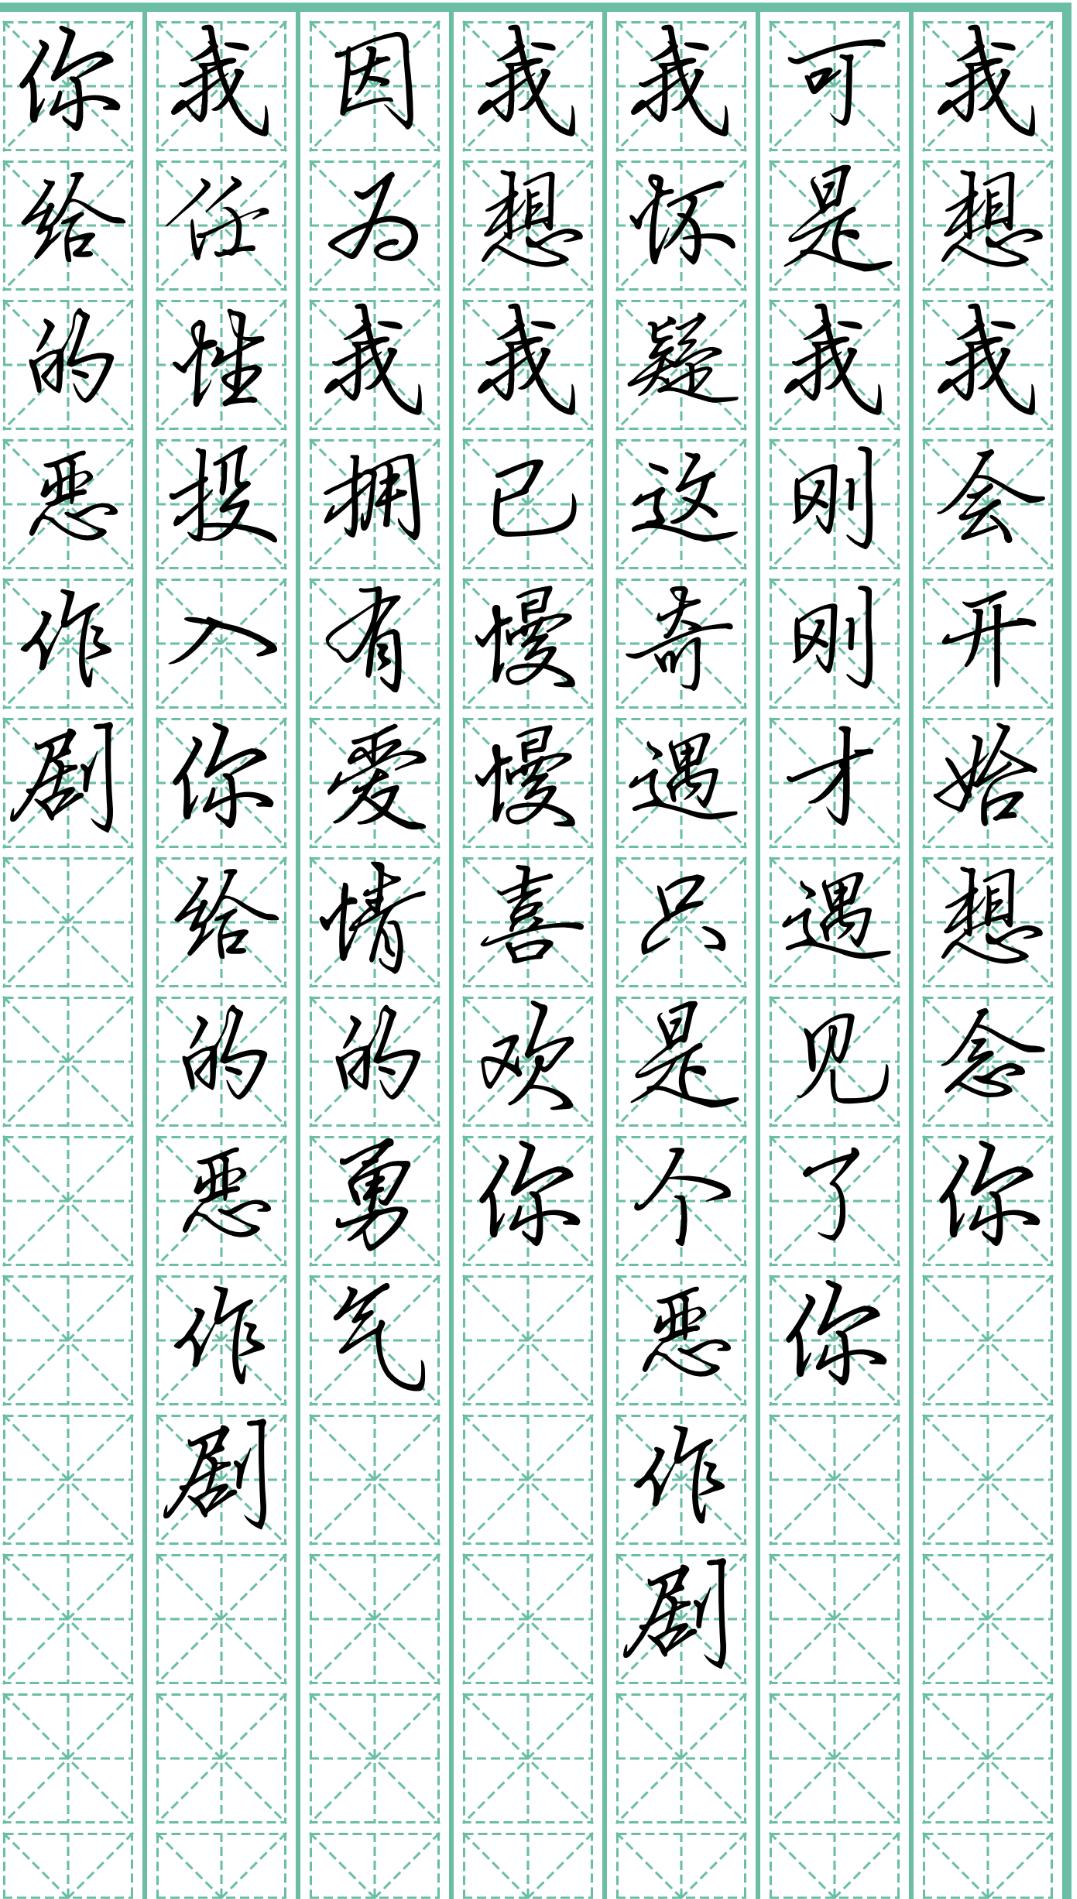 我想我会开始想念你
可是我刚刚才遇见了你
我怀疑这奇遇只是个恶作剧
我想我已慢慢喜欢你
因为我拥有爱情的勇气
我任性投入你给的恶作剧
你给的恶作剧